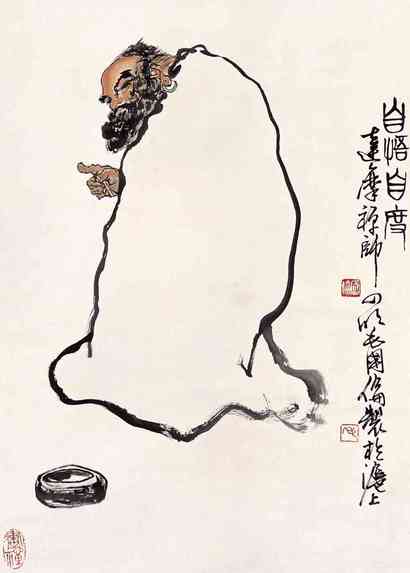 自悟自度
達摩禪師四明毛國倫製於滬上